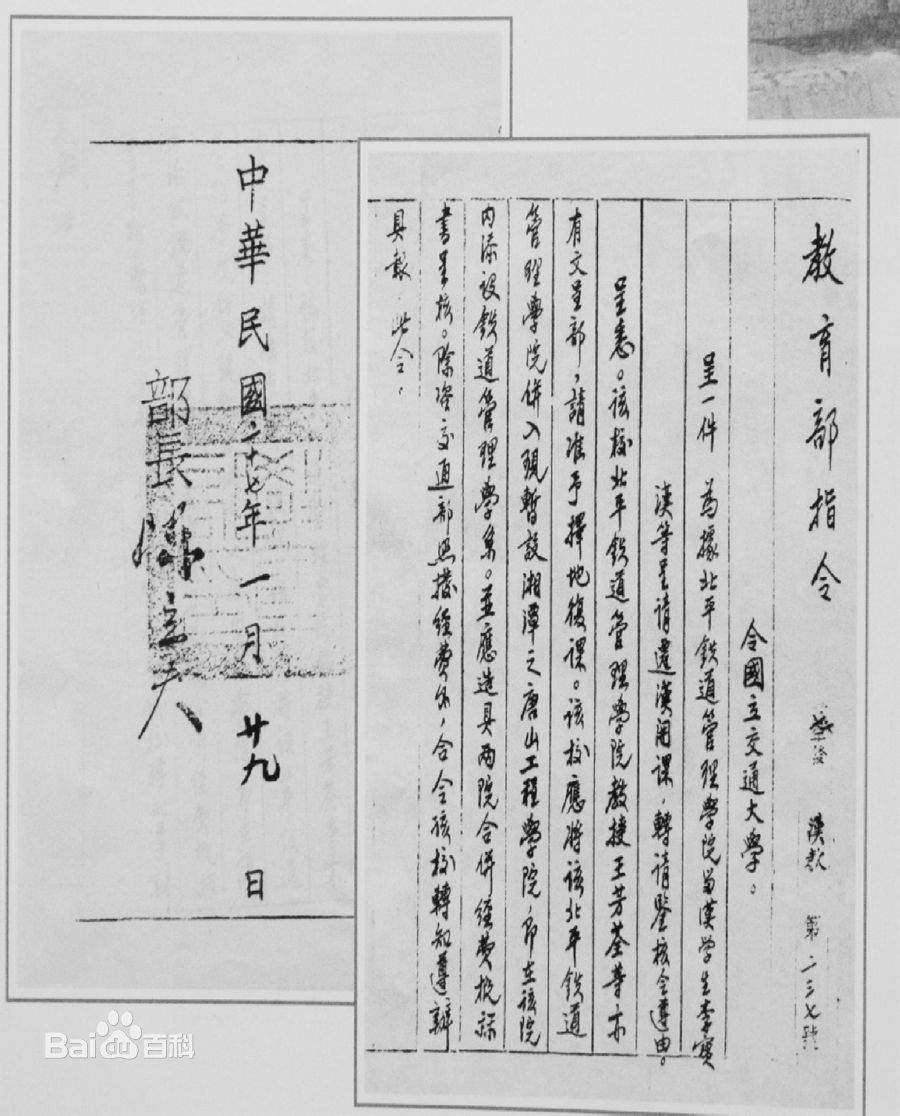 教育部指令
發 漢教 第二三七號
令國立交通大學。
呈一件 為據北平鉄道管理學院留漢學生李寶
漢等呈請遷漢開課，轉請鑒核令遵由。
呈悉。該校北平鉄道管理學院教授王芳荃等亦
有文呈部，請准予擇地復課。該校應將該北平鉄道
管理學院併入現暫設湘潭之唐山工程學院，即在該院
內添設鉄道管理學系。並應造具兩院合併經費概算
書呈核。除咨交通部照撥經費外，合令該校轉知遵辦
具報。此令。
中華民國二十七年一月廿九日
部長陳立夫
Bai百科